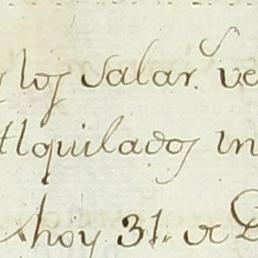 los Salar.s ve
Alquilados in
hoy 31. de D